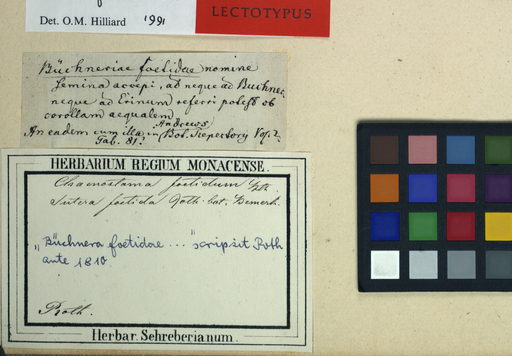 Det. O.M. Hilliard 1991
LECTOTYPUS
Büchneriae foetidae nomine
semina accepi, ad neque ad Buchner
neque ad Erinum referri potest ob
corollam aequalem.
Andrews
An eadem cum illa in Bot. Repertory Vol. 2.
Tab. 81?
HERBARIUM REGIUM MONACENSE.
Chaenostoma foetidum
Sutera foetida Roth. bot. Bemerk.
„Büchnera foetidae ..." scripsit Roth
ante 1810
Roth.
Herbar. Schreberianum.